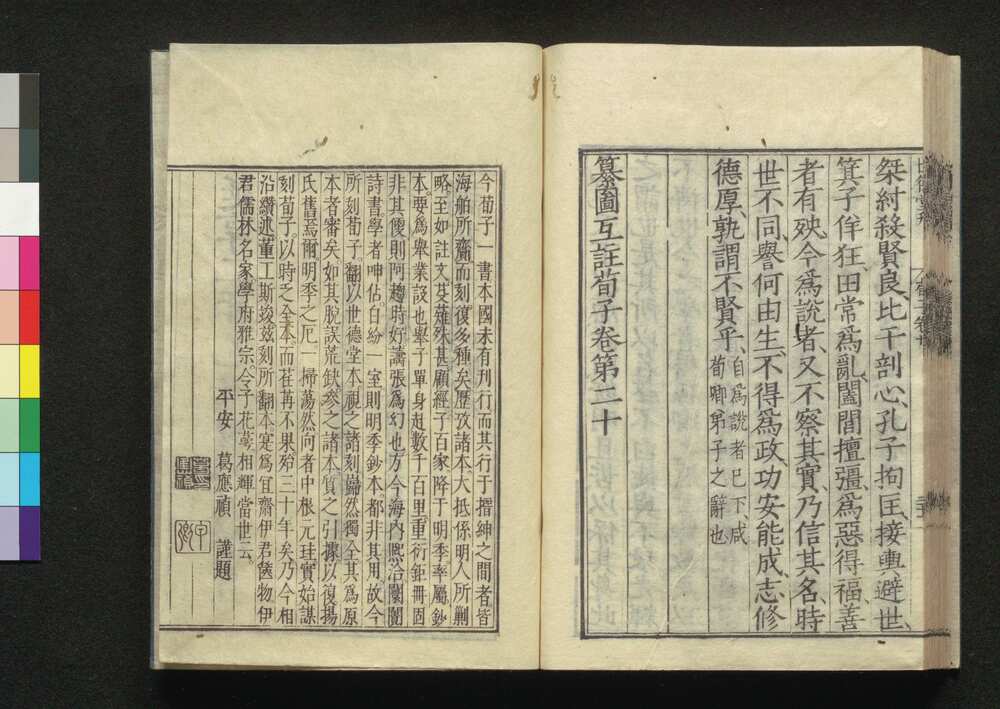 桀紂殺賢良、比干剖心、孔子拘匡、接輿避世、
箕子佯狂、田常爲亂、闔閭擅彊、爲惡得福、善
者有殃、今爲説者、又不察其實、乃信其名、時
世不同、譽何由生、不得爲政、功安能成、志修
德厚、孰謂不賢乎、自爲說者已下咸荀卿弟子之辭也
纂圖互註荀子卷第二十
今荀子一書本國未有刊行而其行于搢紳之間者皆
海舶所齎而刻復多種矣歷攷諸本大抵係明人所刪
略至如註文芟薙殊甚顧經子百家降于明季率屬鈔
本要爲舉業設也舉子單身赴數千百里重衍鉅冊固
非其便則阿趨時好譸張爲幻也方今海內熙洽闤闠
詩書學者呻佔白紛一室則明季鈔本都非其用故今
所刻荀子翻以世德堂本視之諸刻巋然獨全其爲原
本者審矣如其脫誤荒缺參之諸本質之引據以復揚
氏舊焉爾明季之厄一掃蕩然向者中根元珪實始謀
刻荀子以時乏全本而荏苒不果殆三十年矣乃今相
沿纘述董工斯竣茲刻所翻本寔爲宜齋伊君篋物伊
君儒林名家學府雅宗令子花萼相輝當世云
平安 葛應禎 謹題